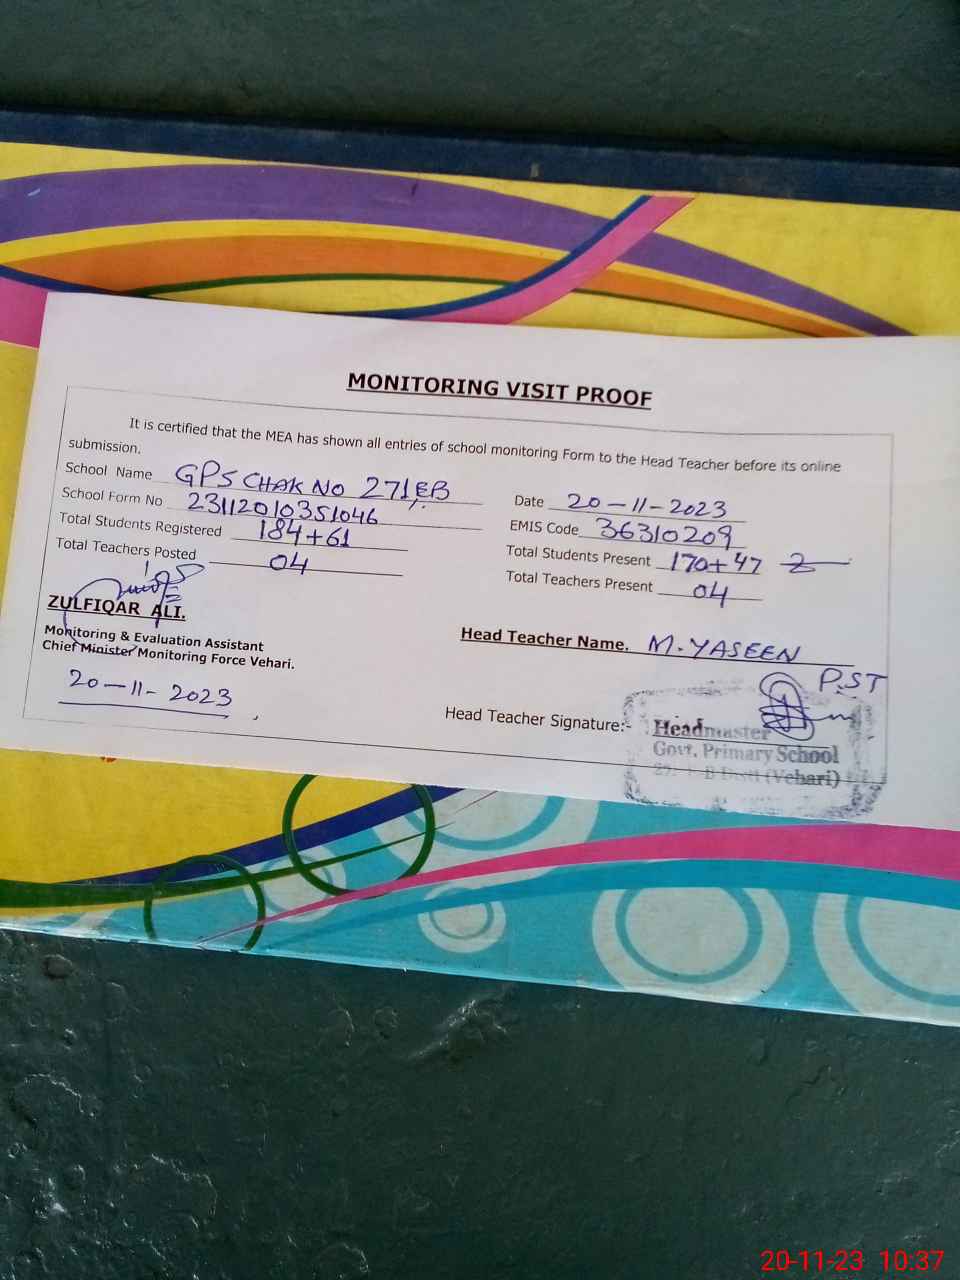 MONITORING VISIT PROOF
It is certified that the MEA has shown all entries of school monitoring Form to the Head Teacher before its online
submission.
School Name GPS CHAK NO 271,EB
Date 20-11-2023
School Form No 23112010351046
EMIS Code 36310209
Total Students Registered 184+61
Total Students Present 170+47
Total Teachers Posted 04
Total Teachers Present 04
ZULFIQAR ALI.
Monitoring & Evaluation Assistant
Chief Minister Monitoring Force Vehari.
20-11-2023
Head Teacher Name. M.YASEEN
P.ST
Head Teacher Signature:-
Headmaster
Govt. Primary School
(Vehari)
20-11-23 10:37